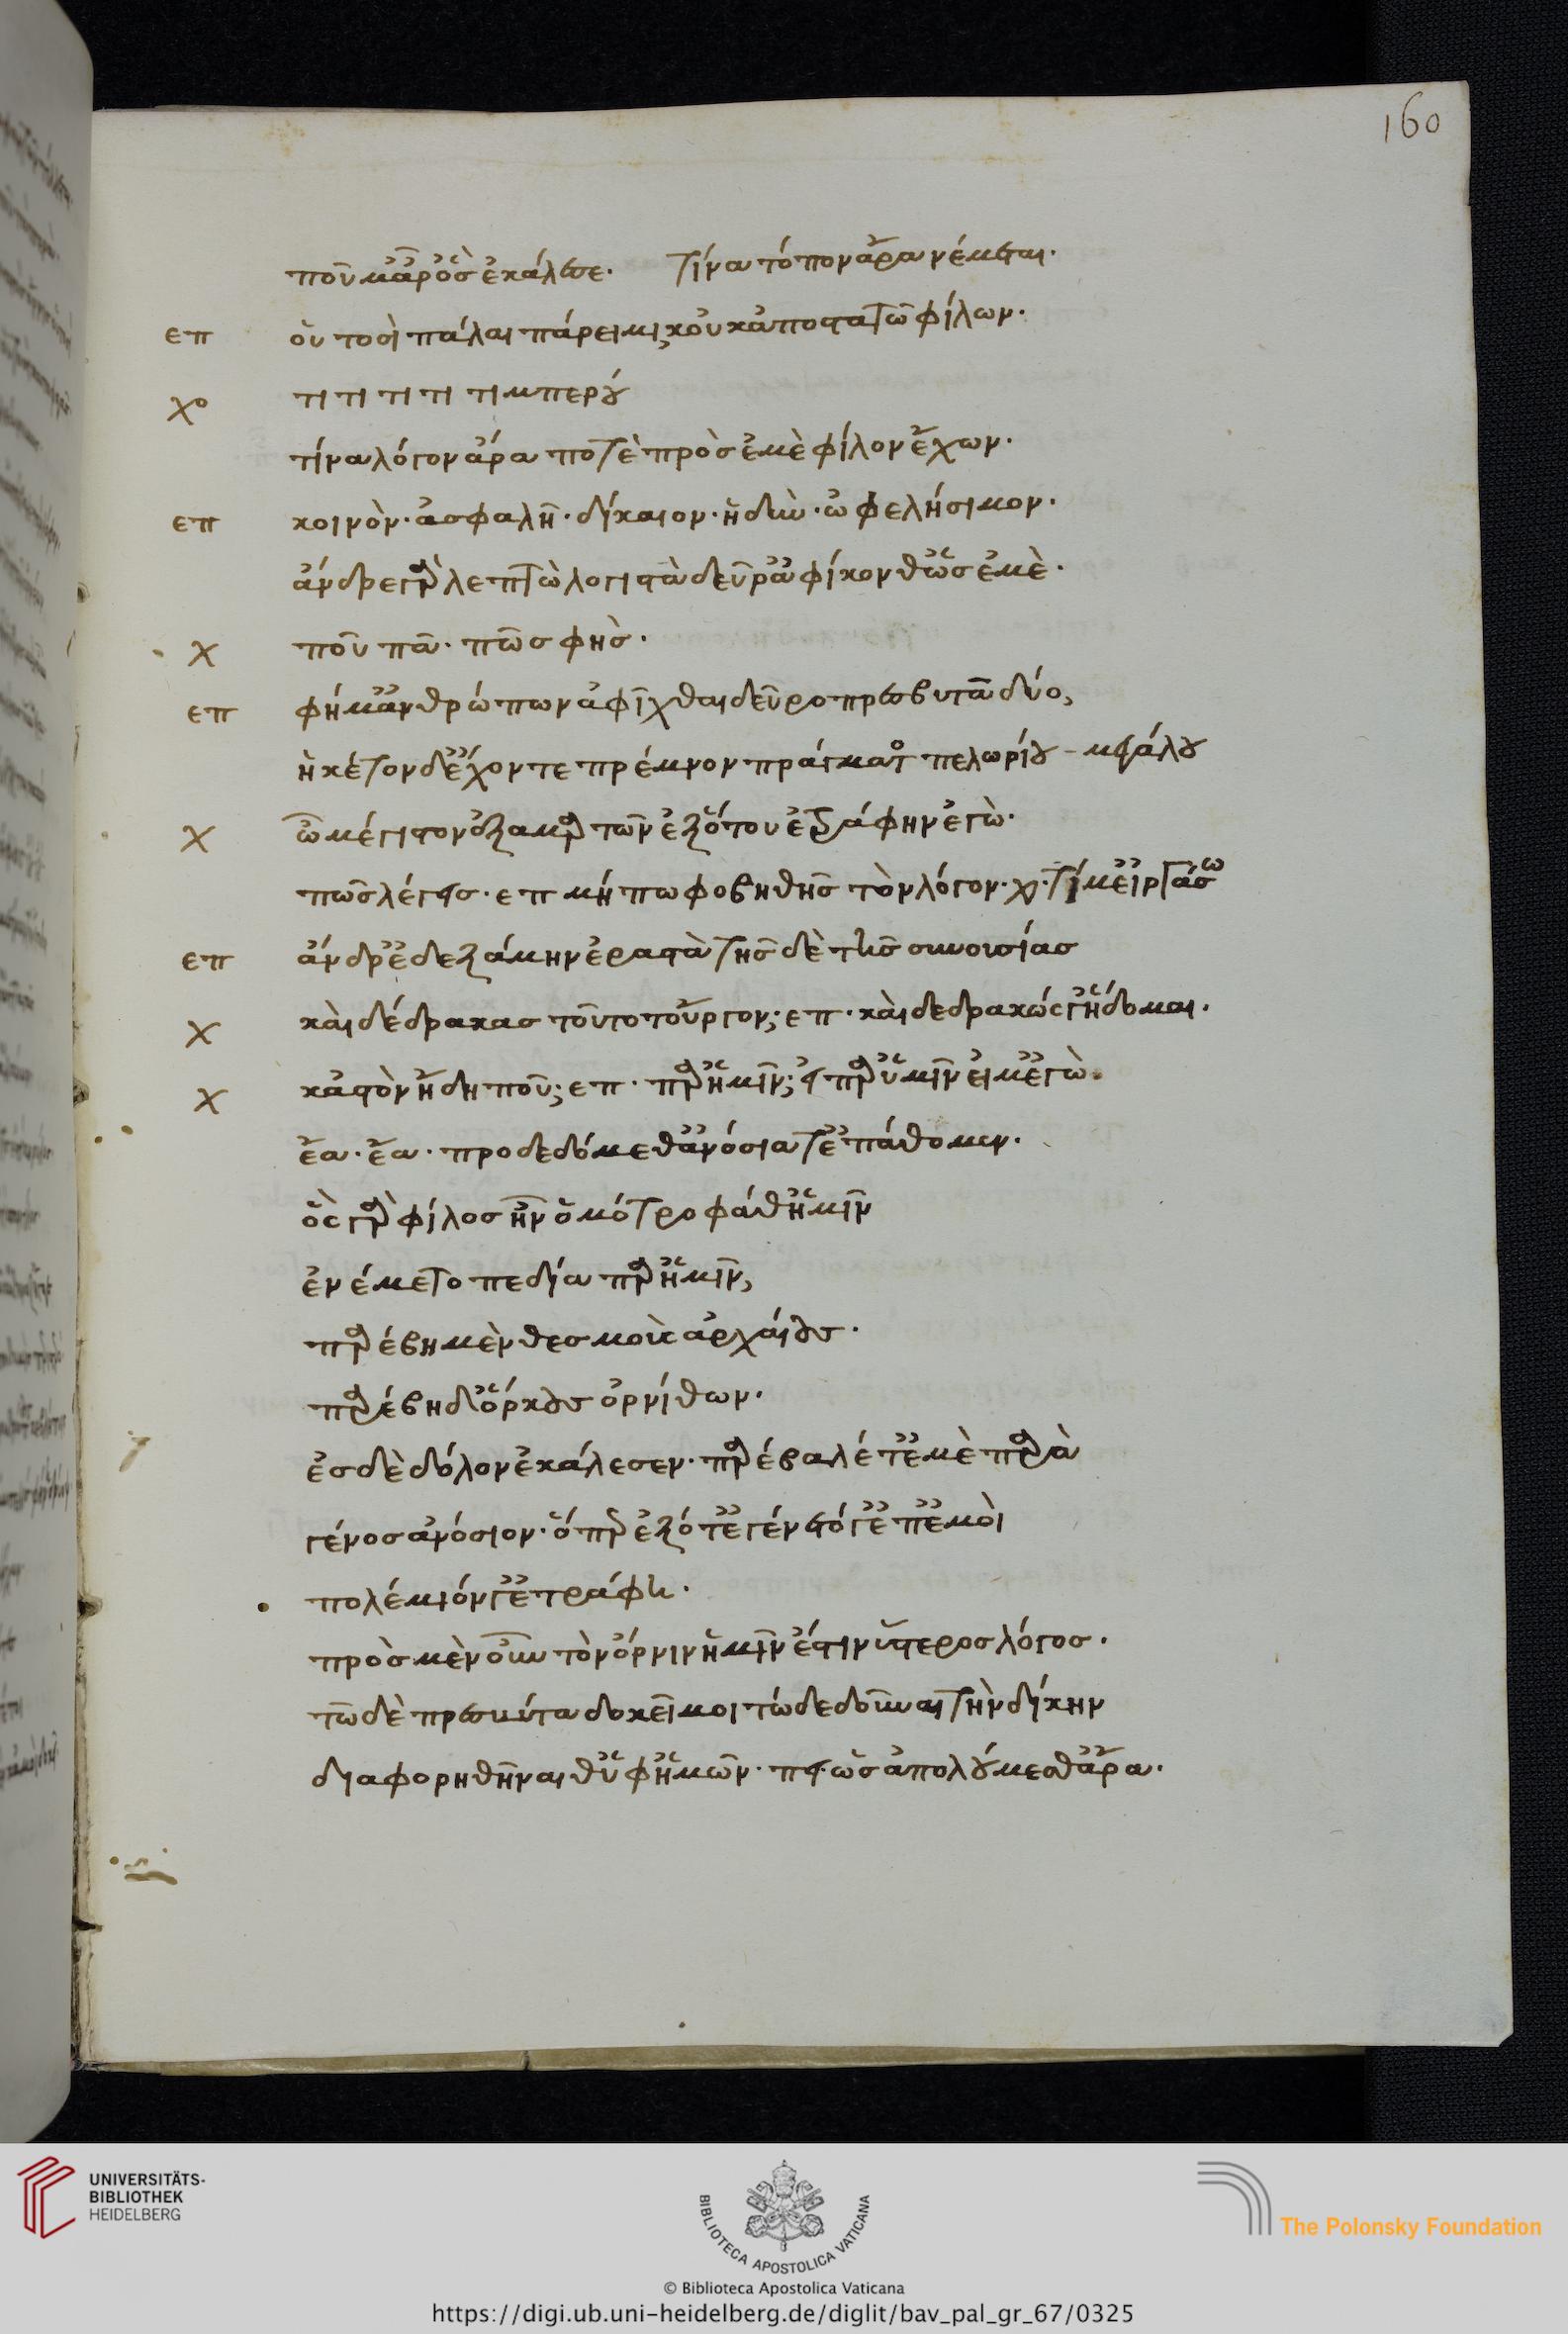 160
ποῦ μ᾽ ἄρ᾽ ὃς ἐκάλεσε. τίνα τόπον ἄρα νέμεται.
επ οὑτοσὶ πάλαι πάρειμι, κοὐκ ἀποστατῶ φίλων.
χο τι τι τι τι τιμπερου
τίνα λόγον ἄρα ποτὲ πρὸς ἐμὲ φίλον ἔχων.
επ κοινὸν. ἀσφαλῆ. δίκαιον. ἡδὺν. ὠφελήσιμον.
ἄνδρε γὰρ λεπτὼ λογιστὰ δεῦρ᾽ ἀφίκονθ᾽ ὡς ἐμὲ.
χ ποῦ πᾶ. πῶς φὴς.
επ φήμ᾽ ἀνθρώπων ἀφῖχθαι δεῦρο πρεσβυτα δύο,
ἥκετον δ᾽ ἔχοντε πρέμνον πράγματος πελωρίου μεγάλου
χ ὦ μέγιστον ἐξαμαρτὼν ἐξ ὅτου ἐτράφην ἐγὼ.
πῶς λέγεις. επ μή πω φοβηθῆς τὸν λόγον. χ. τί μ᾽ εἰργάσω
επ ἄνδρ᾽ ἐδεξάμην ἐραστὰ τῆσδε τῆς συνουσίας
χ καὶ δέδρακας τοῦτο τοὖργον; επ. καὶ δεδρακώς γ᾽ ἥδομαι.
χ κἀστὸν ἤδη που; επ. παρ᾽ ἡμῖν; εἰ παρ᾽ ὑμῖν εἰμ᾽ ἐγὼ.
ἔα. ἔα. προδεδόμεθ᾽ ἀνόσιά τ᾽ ἐπάθομεν.
ὃς γὰρ φίλος ἦν ὁμότροφά θ᾽ ἡμῖν
ἐνέμετο πεδία παρ᾽ ἡμῖν,
παρέβη μὲν θεσμοὺς ἀρχαίους.
παρέβη δ᾽ ὅρκους ὀρνίθων.
ἐς δὲ δόλον ἐκάλεσεν. παρέβαλέ τ᾽ ἐμὲ παρὰ
γένος ἀνόσιον. ὅπερ ἐξότ᾽ ἐγένετό γ᾽ ἐπ᾽ ἐμοὶ
πολέμιόν γ᾽ ἐτράφη.
πρὸς μὲν οὖν τὸν ὄρνιν ἡμῖν ἐστιν ὕστερος λόγος.
τῶδε πρεσβύτα δοκεῖ μοι τώδε δοῦναι τὴν δίκην
διαφορηθῆναι θ᾽ ὑφ᾽ ἡμῶν. πει. ὡς ἀπολούμεσθ᾽ ἄρα.
UNIVERSITÄTS-
BIBLIOTHEK
HEIDELBERG
BIBLIOTECA APOSTOLICA VATICANA
The Polonsky Foundation
© Biblioteca Apostolica Vaticana
https://digi.ub.uni-heidelberg.de/diglit/bav_pal_gr_67/0325